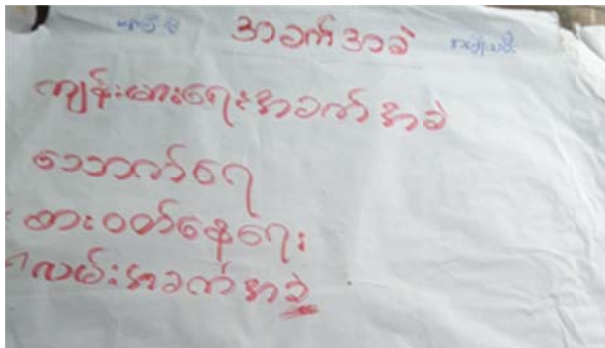 အခက်အခဲ အမျိုးသမီး
ကျန်းမာရေးအခက်အခဲ
သောက်ရေ
စားဝတ်နေရေး
လမ်းအခက်အခဲ